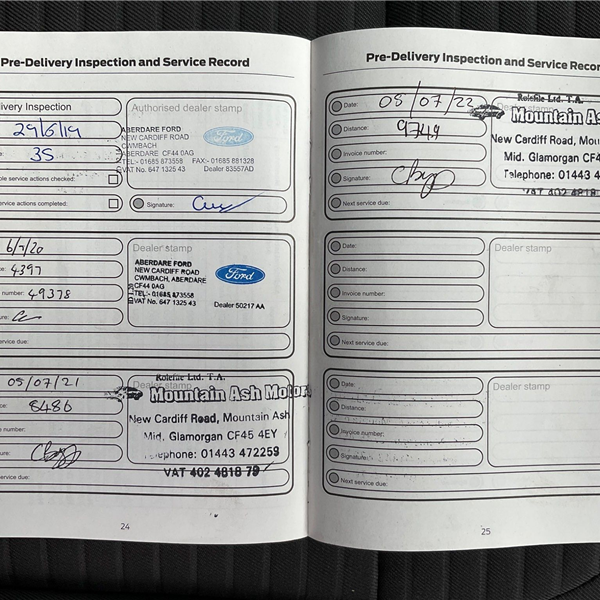 Pre-Delivery Inspection and Service Record
ivery Inspection
29/6/19
35
ble service actions checked:
service actions completed:
Authorised dealer stamp
ABERDARE FORD
NEW CARDIFF ROAD
CWMBACH
ABERDARE CF44 0AG
TEL:- 01685 873558 FAX:- 01685 881328
VAT No. 647 1325 43 Dealer 83557AD
Ford
Signature:
6/7/20
4397
number: 49378
ure:
vice due:
Dealer stamp
ABERDARE FORD
NEW CARDIFF ROAD
CWMBACH, ABERDARE
CF44 0AG
TEL:- 01685 873558
VAT No. 647 1325 43
Dealer 50217 AA
Ford
05/07/21
ce: 8486
e number:
ure:
vice due:
Dealer stamp
Rolefile Ltd. T.A.
Mountain Ash Motors
New Cardiff Road, Mountain Ash
Mid. Glamorgan CF45 4EY
Telephone: 01443 472259
VAT 402 4818 79
24
Pre-Delivery Inspection and Service Recor
Date: 05/07/22
Distance: 9749
Invoice number:
Signature:
Next service due:
Rolefile Ltd. T.A.
Mountain As
New Cardiff Road, Mou
Mid. Glamorgan CF4
Telephone: 01443 4
VAT 402 4818
Date:
Distance:
Invoice number:
Signature:
Next service due:
Dealer stamp
Date:
Distance:
Invoice number:
Signature:
Next service due:
Dealer stamp
25